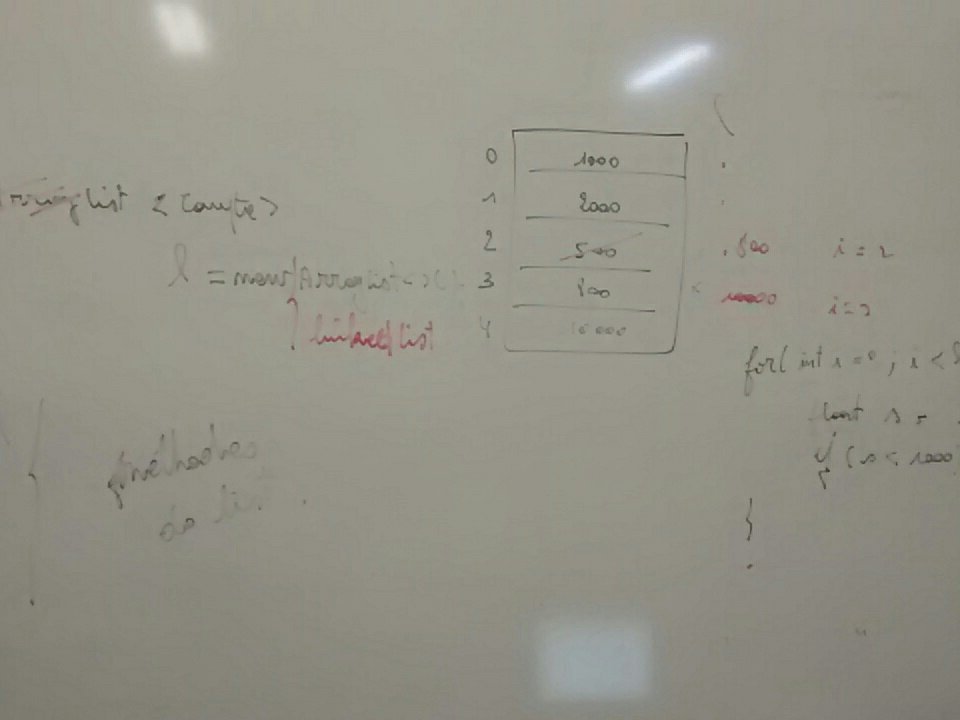 List < Compte >
l = new ArrayList < > (
linked list
méthodes
de list.
0 1000
1 2000
2 500
3 800
4 10000
. 500 i = 2
10000 i = 3
for( int i = 0 ; i <
float s =
if (s < 1000)
}